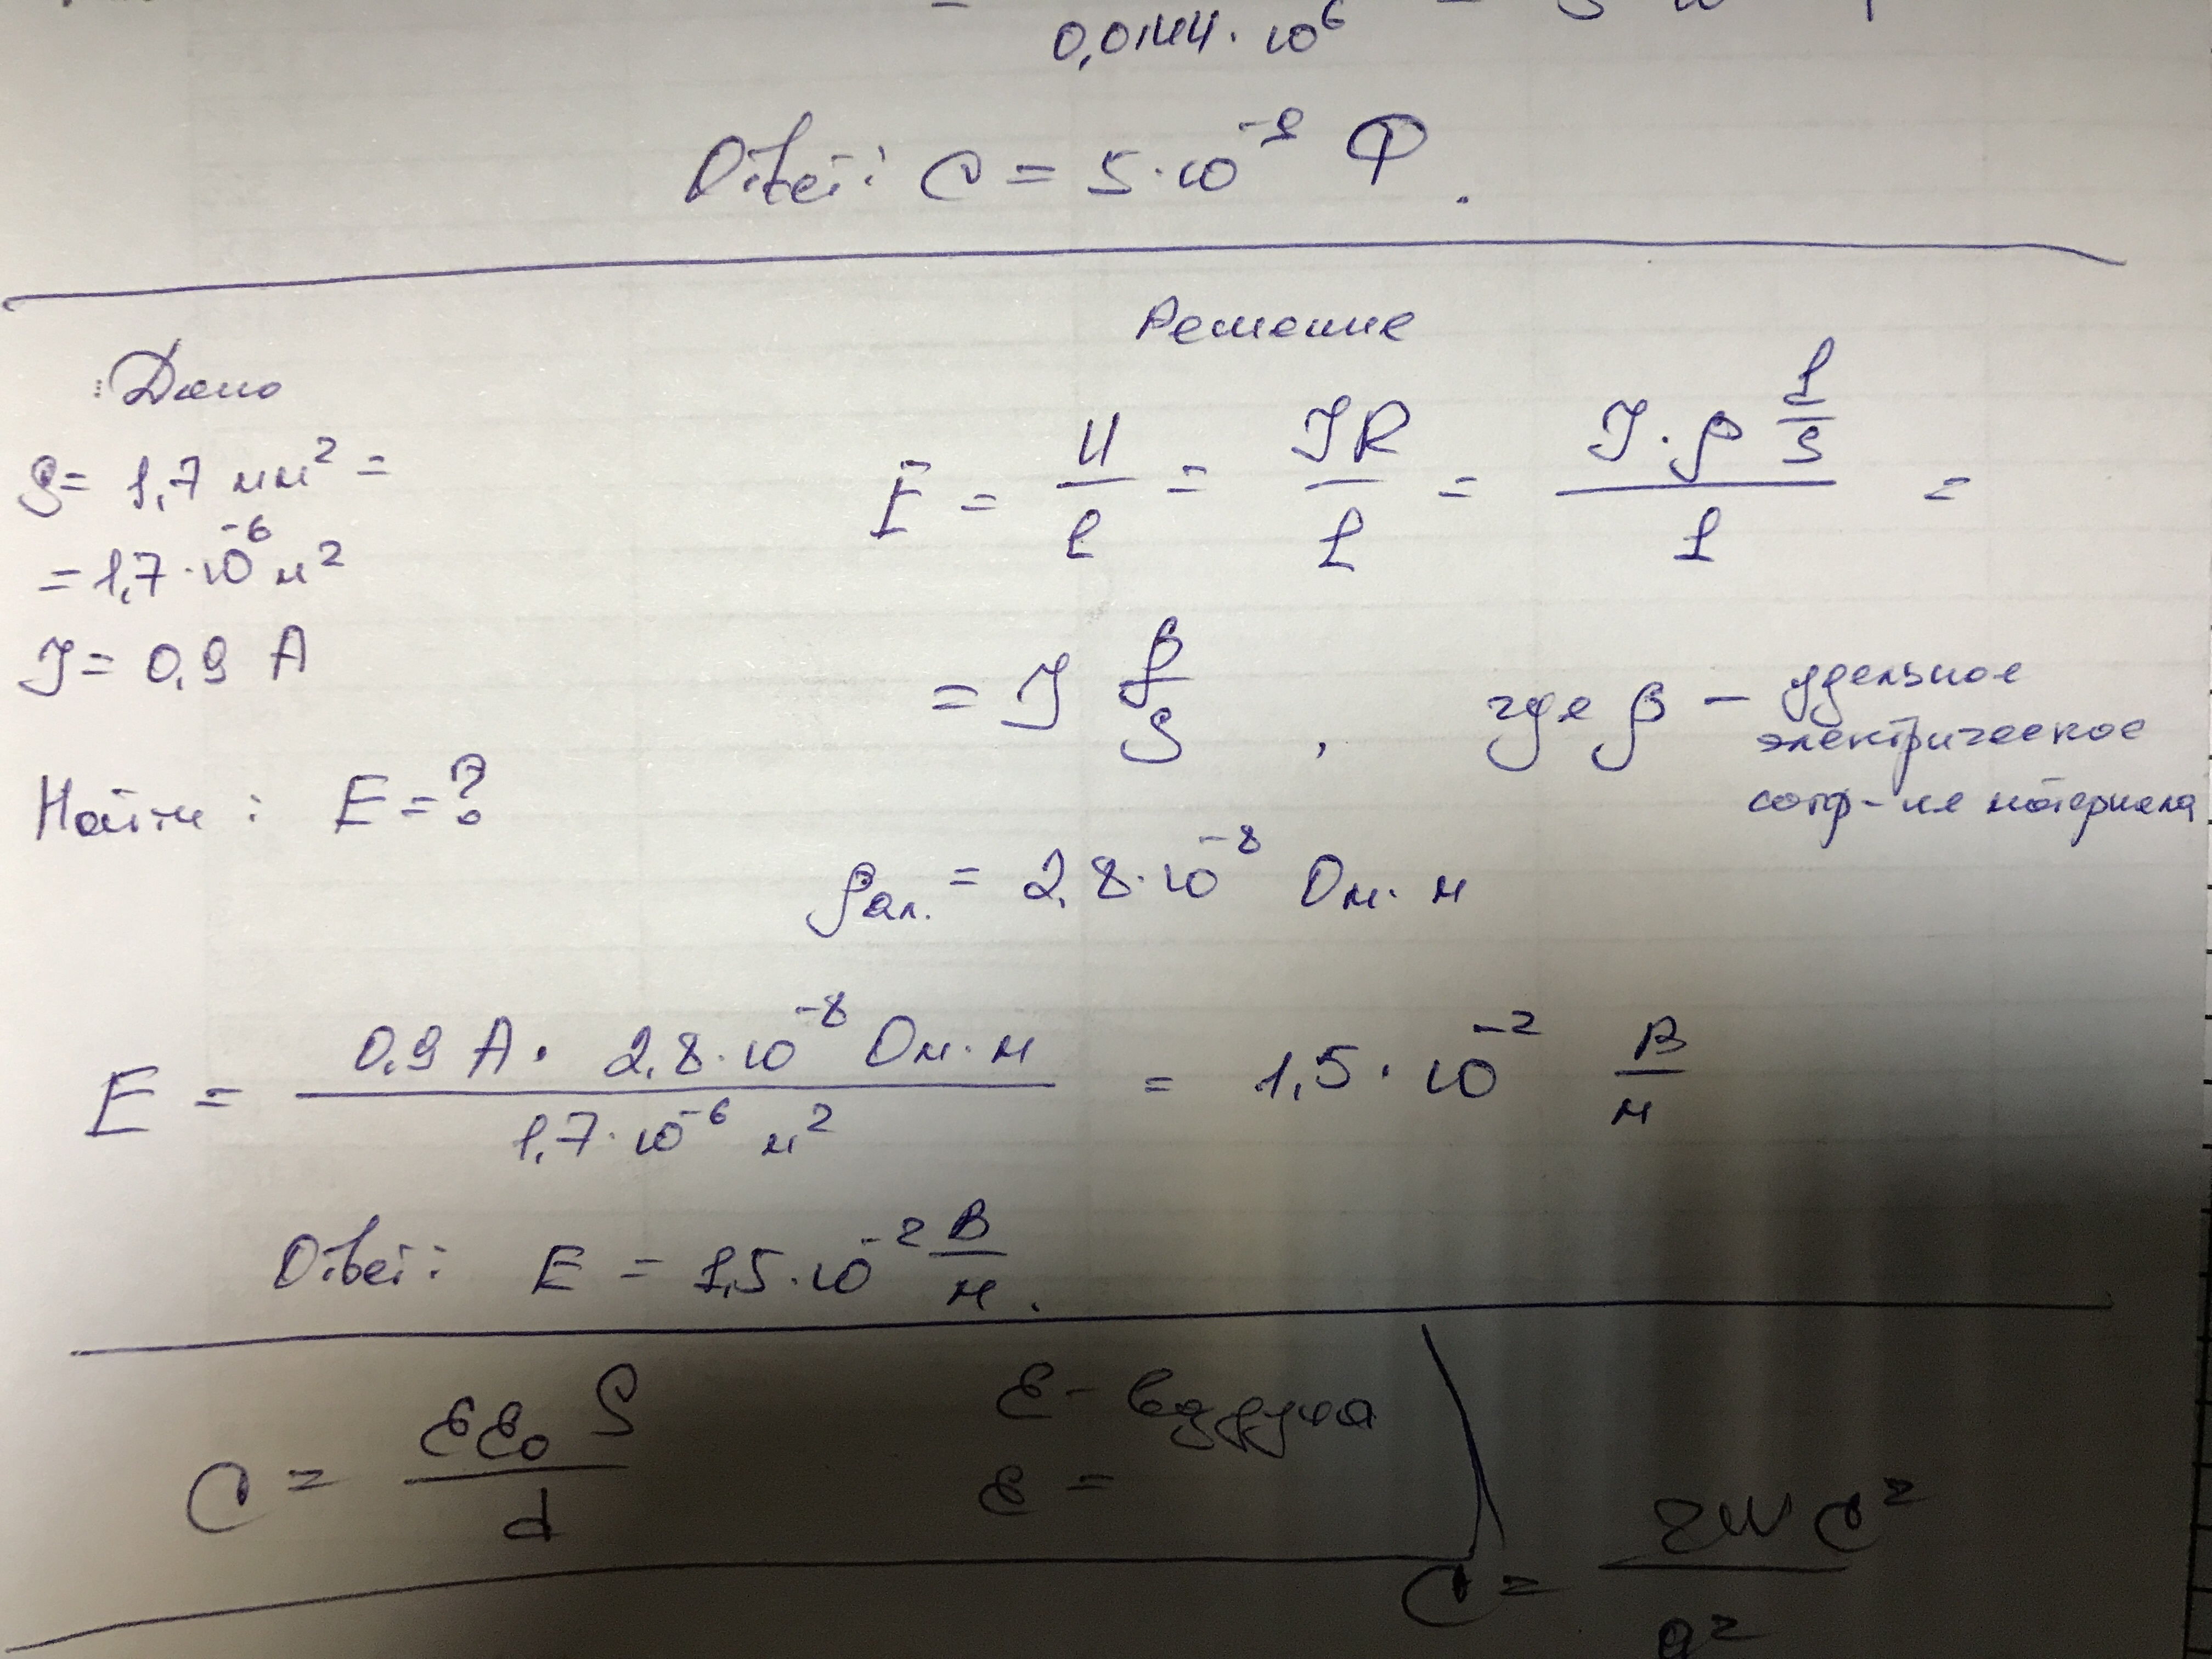 0,0144 · 10⁶
Ответ: C = 5·10⁻⁹ Ф.
Решение
Дано
S = 1,7 мм² =
= 1,7·10⁻⁶ м²
J = 0,9 А
Найти: E = ?
E = U/l = JR/l = J·ρ l/S / l =
= J ρ/S , где ρ – удельное
электрическое
сопр-ие материала
ρал. = 2,8·10⁻⁸ Ом·м
E = 0,9 А · 2,8·10⁻⁸ Ом·м / 1,7·10⁻⁶ м² = 1,5·10⁻² В/м
Ответ: E = 1,5·10⁻² В/м.
C = εε₀S / d
ε – воздуха
ε =
C = 2WC² / q²